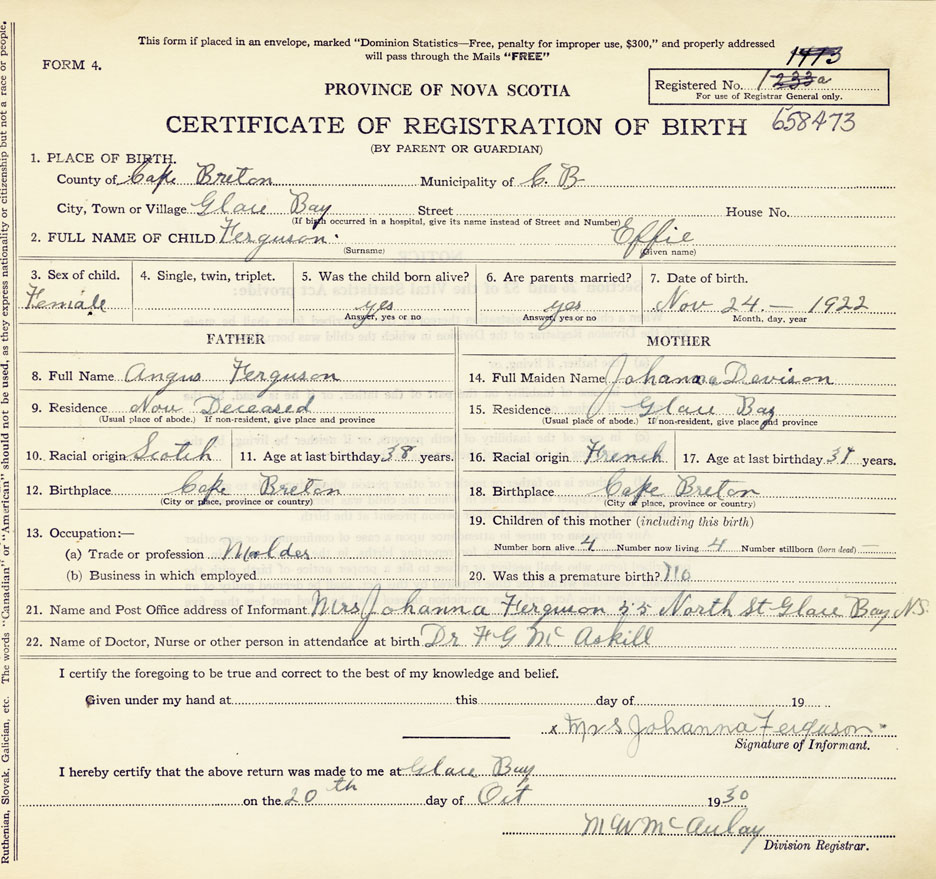 This form if placed in an envelope, marked "Dominion Statistics—Free, penalty for improper use, $300," and properly addressed
will pass through the Mails "FREE"
FORM 4.
1473
PROVINCE OF NOVA SCOTIA
Registered No. 1233a
For use of Registrar General only.
CERTIFICATE OF REGISTRATION OF BIRTH 658473
(BY PARENT OR GUARDIAN)
1. PLACE OF BIRTH.
County of Cape Breton Municipality of C. B
City, Town or Village Glace Bay Street House No.
(If birth occurred in a hospital, give its name instead of Street and Number)
2. FULL NAME OF CHILD Ferguson Effie
(Surname) (Given name)
3. Sex of child. 4. Single, twin, triplet. 5. Was the child born alive? 6. Are parents married? 7. Date of birth.
Female yes yes Nov 24 — 1922
Answer, yes or no Answer, yes or no Month, day, year
FATHER MOTHER
8. Full Name Angus Ferguson 14. Full Maiden Name Johanna Devison
9. Residence Now Deceased 15. Residence Glace Bay
(Usual place of abode.) If non-resident, give place and province (Usual place of abode.) If non-resident, give place and province
10. Racial origin Scotch 11. Age at last birthday 38 years. 16. Racial origin French 17. Age at last birthday 37 years.
12. Birthplace Cape Breton 18. Birthplace Cape Breton
(City or place, province or country) (City or place, province or country)
13. Occupation:— 19. Children of this mother (including this birth)
(a) Trade or profession Molder Number born alive 4 Number now living 4 Number stillborn (born dead) —
(b) Business in which employed 20. Was this a premature birth? no
21. Name and Post Office address of Informant Mrs Johanna Ferguson 55 North St Glace Bay N.S.
22. Name of Doctor, Nurse or other person in attendance at birth Dr F G McAskill
I certify the foregoing to be true and correct to the best of my knowledge and belief.
Given under my hand at this day of 19
x Mrs Johanna Ferguson
Signature of Informant.
I hereby certify that the above return was made to me at Glace Bay
on the 20th day of Oct 1930
M W McAulay
Division Registrar.
Ruthenian, Slovak, Galician, etc. The words "Canadian" or "American" should not be used, as they express nationality or citizenship but not a race or people.